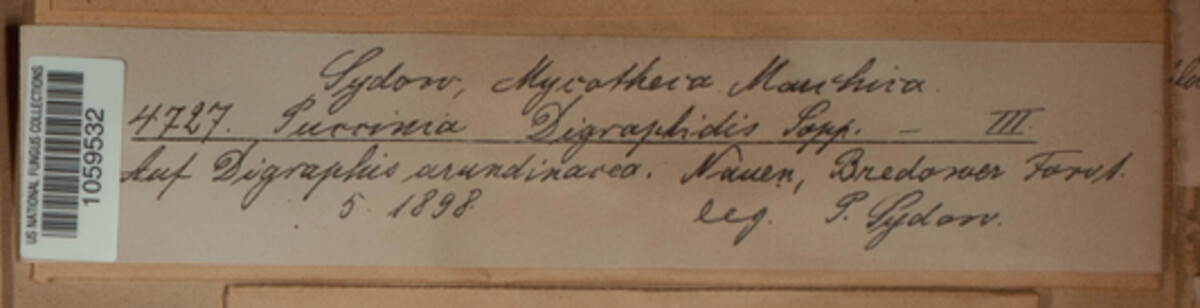 Sydow, Mycotheca Marchica.
4727. Puccinia Digraphidis Sopp. – III.
Auf Digraphis arundinacea. Nauen, Bredower Forst.
5. 1898.
leg. P. Sydow.
US NATIONAL FUNGUS COLLECTIONS
1059532